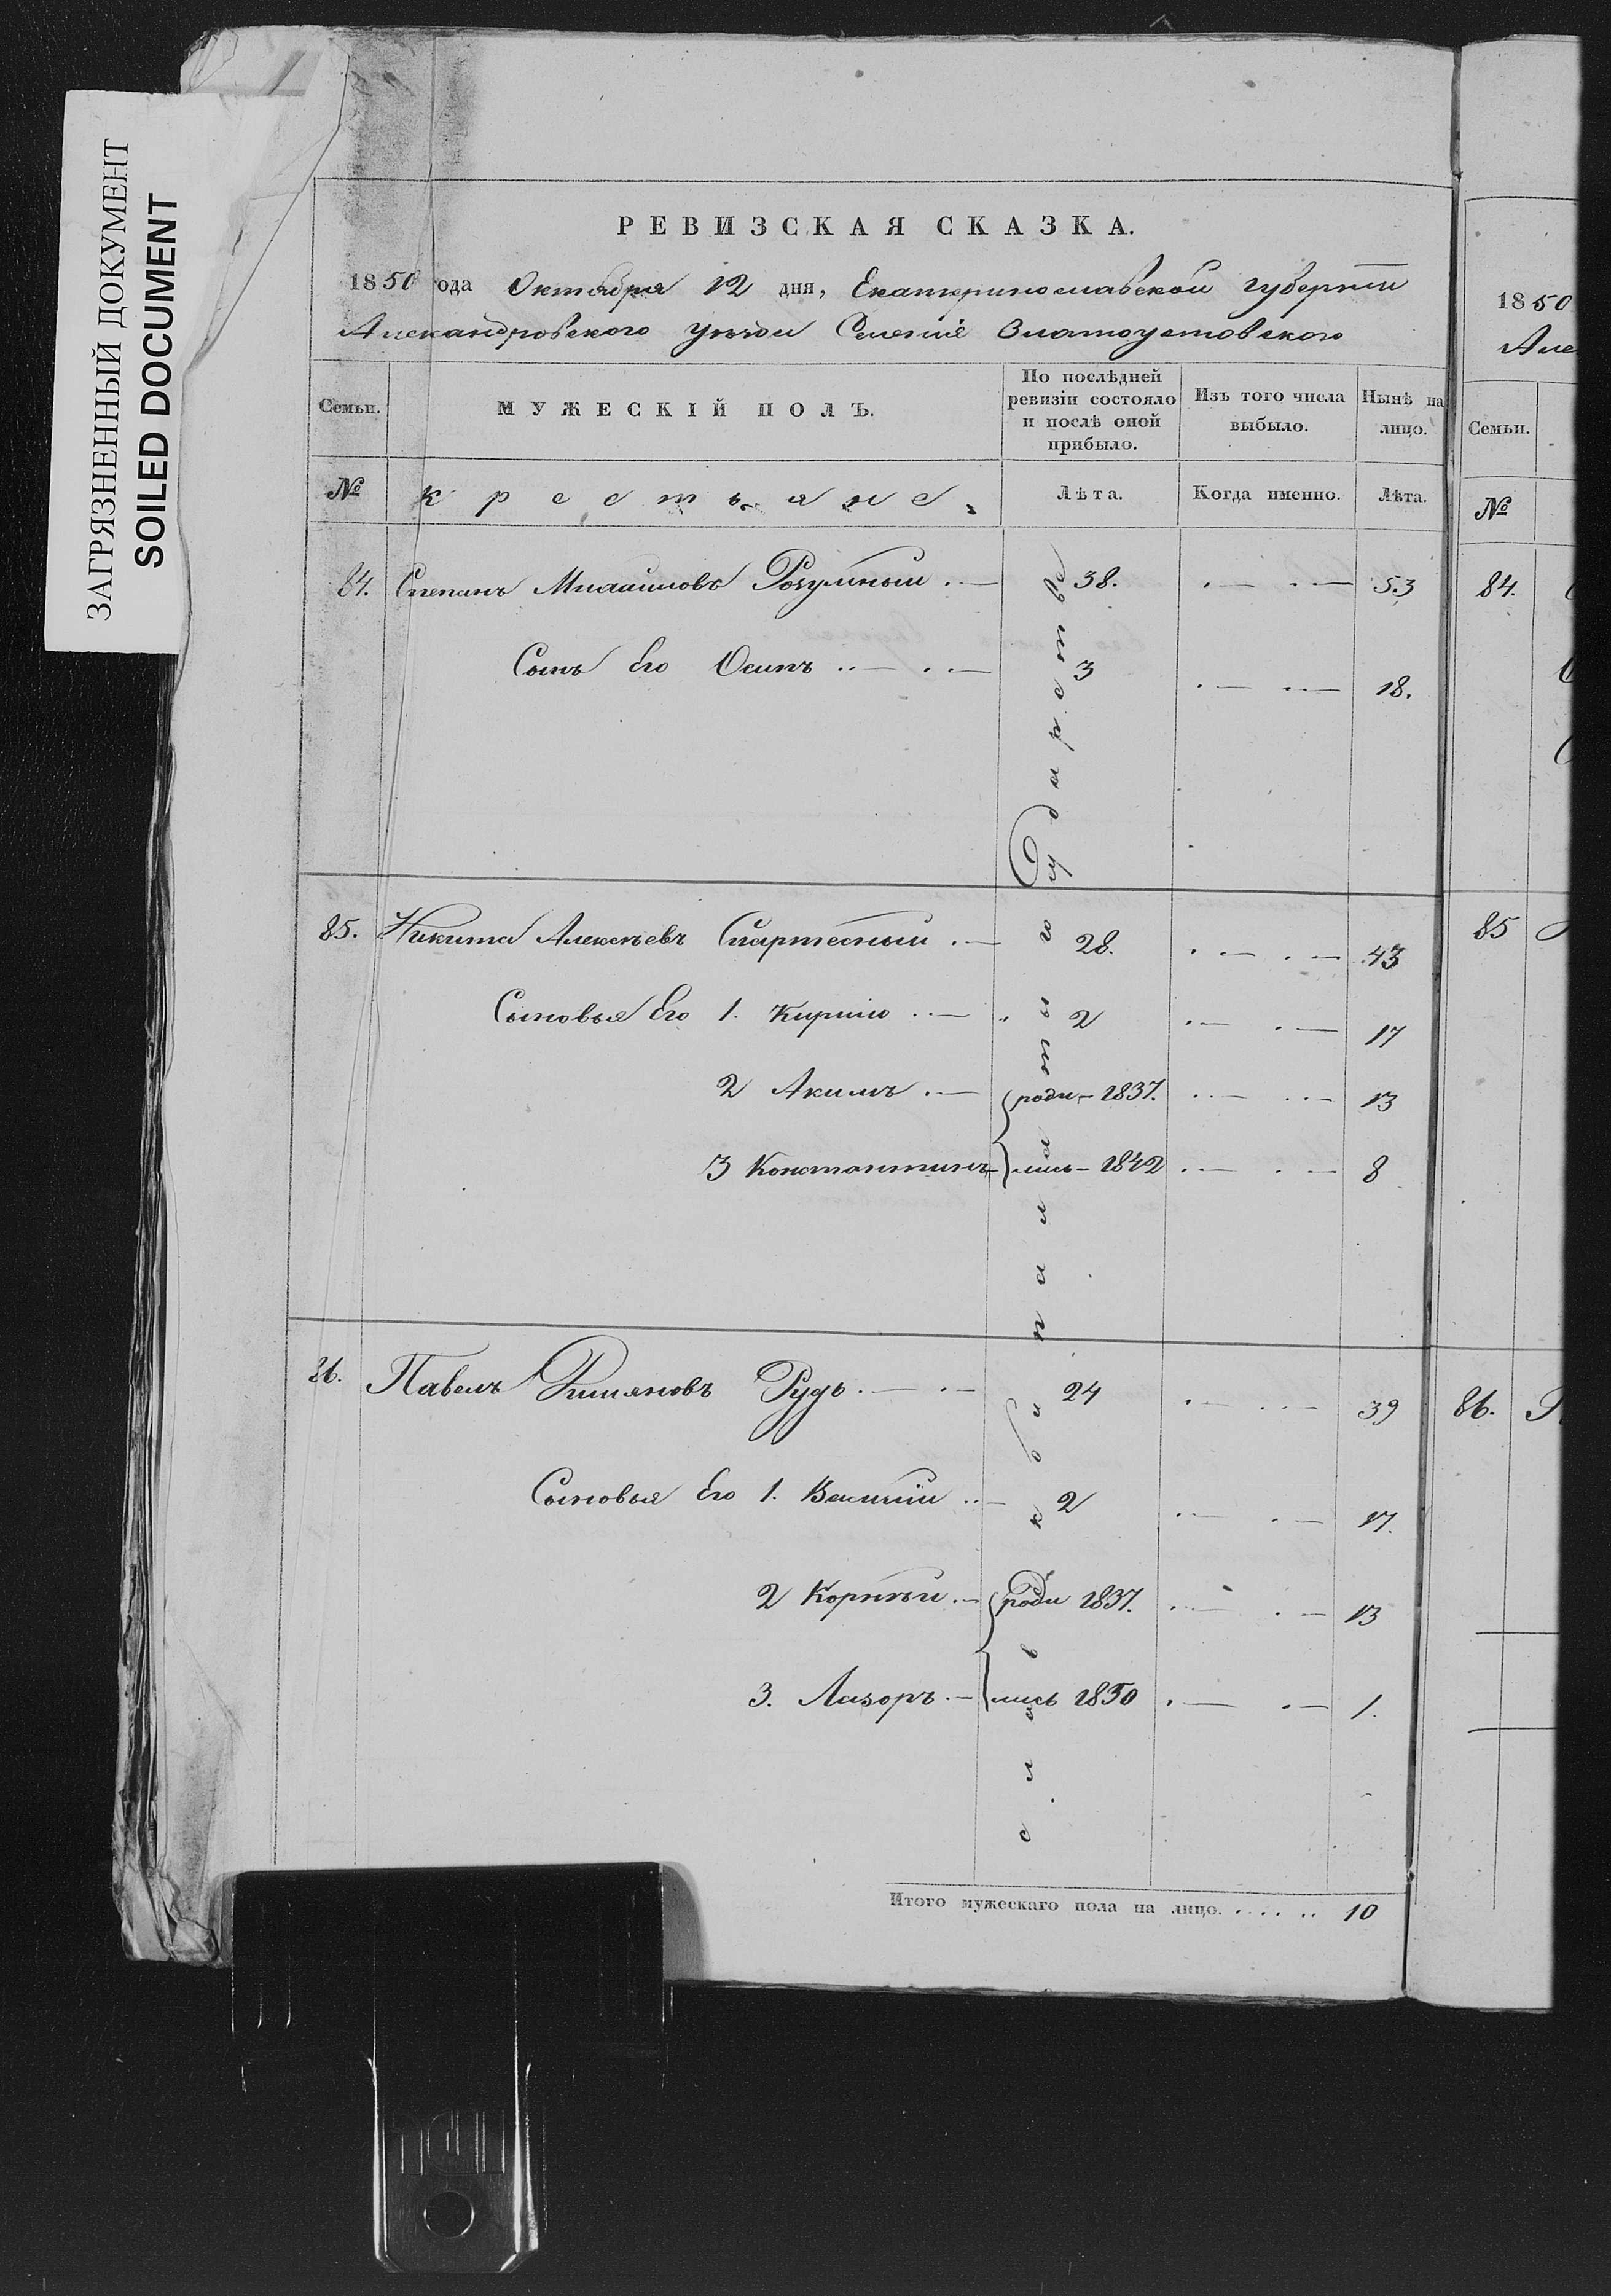 ЗАГРЯЗНЕННЫЙ ДОКУМЕНТ
SOILED DOCUMENT
РЕВИЗСКАЯ СКАЗКА.
1850 ода Октября 12 дня, Екатеринославской губерніи
Александровского Селенія Златоустовского
Семьи. МУЖЕСКІЙ ПОЛЪ. По послѣдней ревизіи состояло и послѣ оной прибыло. Изъ того числа выбыло. Нынѣ на лицо.
№ крестьяне. Лѣта. Когда именно. Лѣта.
84. Степанъ Михайловъ Розумный 38. 53
Сынъ Его Осипъ 3 18.
85. Никита Алексѣевъ 28. 43
Сыновья Его 1. Кирило 2 17
2 Акимъ роди- 1837. 13
3 Константинъ лись- 1842 8
86. Павелъ Рудь 24 39
Сыновья Его 1. Василій 2 17.
2 Корнѣй роди 1837. 13
3. Лазоръ лись 1850 1.
Итого мужескаго пола на лицо. 10
1850
Але
Семьи.
№
84.
85
86.